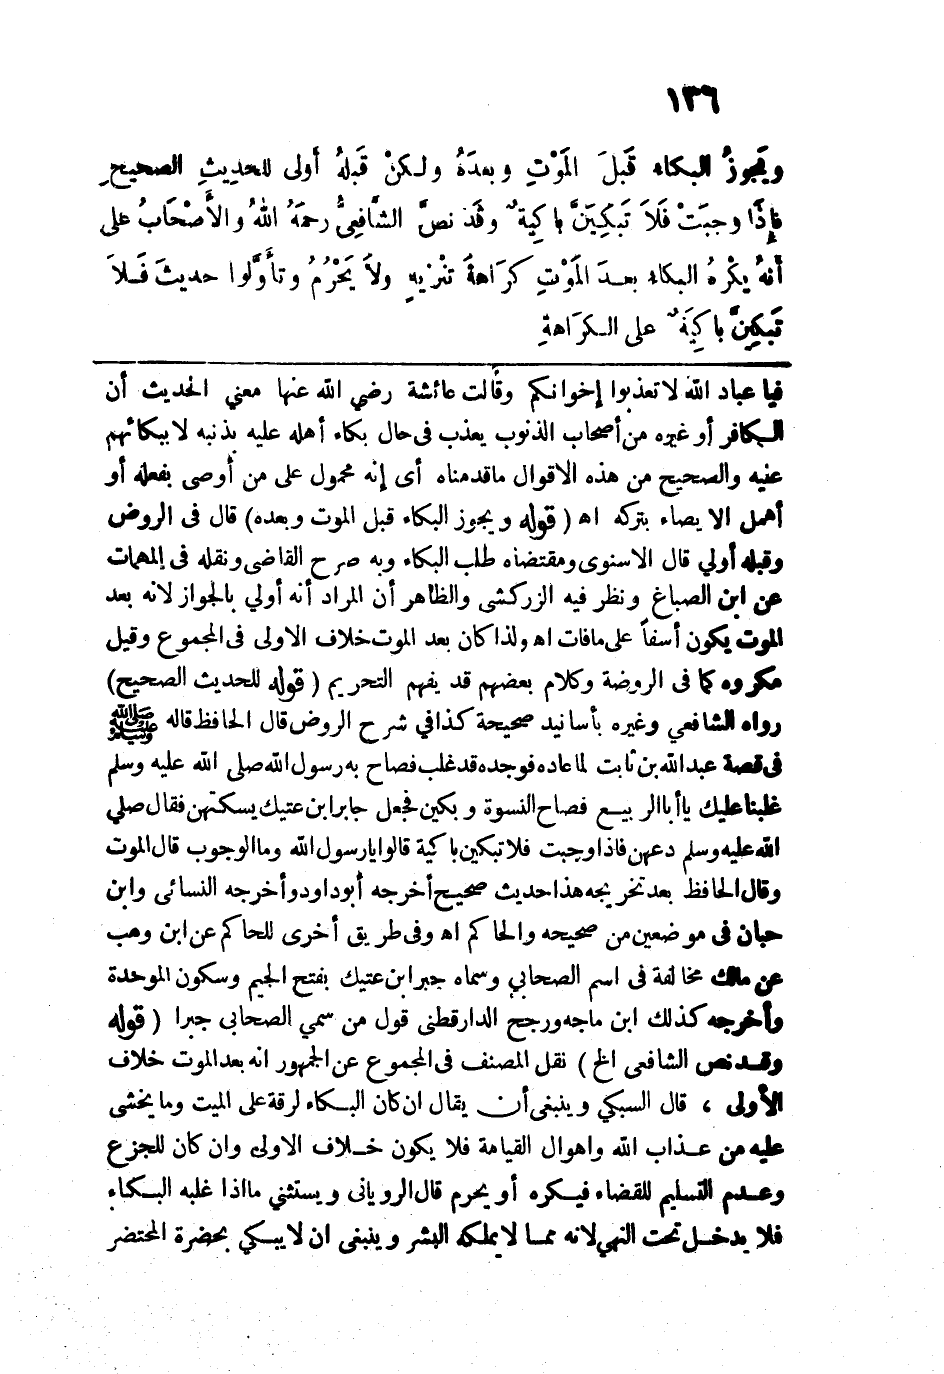 ١٣٦
ويَجوزُ البكاء قَبلَ المَوْتِ وبعدَهُ ولكنْ قَبلهُ أولى للحديثِ الصحيحِ
فإِذَا وجبَتْ فَلاَ تَبكيَنَّ باكِيةٌ وقَد نصَّ الشَّافِعيُّ رحمَهُ اللهُ والأَصْحَابُ على
أنهُ يكْرهُ البكاء بعدَ المَوْتِ كرَاهةَ تنْزيهٍ ولاَ يَحْرُمُ وتأَوَّلوا حديثَ فَلاَ
تَبكينَّ باكِيَةٌ على الكرَاهةِ
فيا عباد الله لا تعذبوا إخوانكم وقالت عائشة رضي الله عنها معني الحديث أن
الكافر أو غيره من أصحاب الذنوب يعذب فى حال بكاء أهله عليه بذنبه لا ببكائهم
عنيه والصحيح من هذه الاقوال ماقدمناه أى إنه محمول على من أوصى بفعله أو
أهمل الايصاء بتركه اه ( قوله ويجوز البكاء قبل الموت وبعده) قال فى الروض
وقبله أولي قال الاسنوى ومقتضاه طلب البكاء وبه صرح القاضى ونقله فى المهمات
عن ابن الصباغ ونظر فيه الزركشى والظاهر أن المراد أنه أولي بالجواز لانه بعد
الموت يكون أسفاً على مافات اه ولذا كان بعد الموت خلاف الاولى فى المجموع وقيل
مكروه كما فى الروضة وكلام بعضهم قد يفهم التحريم ( قوله للحديث الصحيح)
رواه الشافعي وغيره بأسانيد صحيحة كذا في شرح الروض قال الحافظ قاله ﷺ
فى قصة عبدالله بن ثابت لما عاده فوجده قد غلب فصاح به رسول الله صلى الله عليه وسلم
غلبنا عليك ياأبا الربيع فصاح النسوة وبكين فجعل جابر ابن عتيك يسكتهن فقال صلي
الله عليه وسلم دعهن فاذا وجبت فلا تبكين باكية قالوا يارسول الله وما الوجوب قال الموت
وقال الحافظ بعد تخريجه هذا حديث صحيح أخرجه أبو داود وأخرجه النسائى وابن
حبان فى موضعين من صحيحه والحاكم اه وفى طريق أخرى للحاكم عن ابن وهب
عن مالك مخالفة فى اسم الصحابي وسماه جبر ابن عتيك بفتح الجيم وسكون الموحدة
وأخرجه كذلك ابن ماجه ورجح الدارقطنى قول من سمي الصحابى جبرا ( قوله
وقد نص الشافعى الخ ) نقل المصنف فى المجموع عن الجمهور انه بعد الموت خلاف
الأولى ، قال السبكي وينبغى أن يقال ان كان البكاء لرقة على الميت وما يخشى
عليه من عذاب الله واهوال القيامة فلا يكون خلاف الاولى وان كان للجزع
وعدم التسليم للقضاء فيكره أو يحرم قال الرويانى ويستثني ما اذا غلبه البكاء
فلا يدخل تحت النهي لانه مما لا يملكه البشر وينبغى ان لا يبكي بحضرة المحتضر